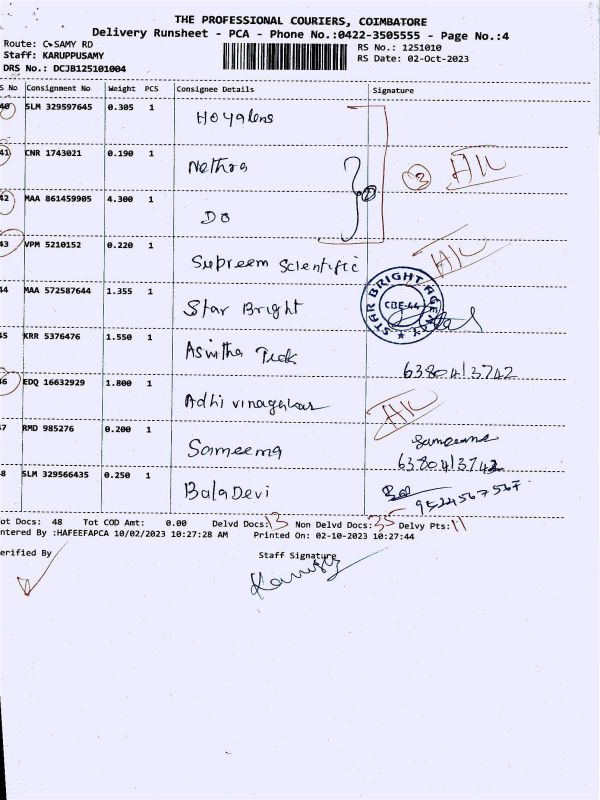 THE PROFESSIONAL COURIERS, COIMBATORE
Delivery Runsheet - PCA - Phone No.:0422-3505555 - Page No.:4
Route: C.SAMY RD
RS No.: 1251010
Staff: KARUPPUSAMY
RS Date: 02-Oct-2023
DRS No.: DCJB125101004
S No Consignment No Weight PCS Consignee Details Signature
40 SLM 329597645 0.305 1 Hoyalens
41 CNR 1743021 0.190 1 Nethra
3 H/L
42 MAA 861459905 4.300 1 DO
43 VPM 5210152 0.220 1 Supreem Scientific H/L
44 MAA 572587644 1.355 1 Star Bright
STAR BRIGHT AGENCY CBE-44
45 KRR 5376476 1.550 1 Aswitha
6380413742
46 EDQ 16632929 1.800 1 Adhi vinagakar H/L
47 RMD 985276 0.200 1 Sameema Sameema
6380413742
48 SLM 329566435 0.250 1 Bala Devi
9524567567
Tot Docs: 48 Tot COD Amt: 0.00 Delvd Docs: 13 Non Delvd Docs: 35 Delvy Pts: 11
ntered By :HAFEEFAPCA 10/02/2023 10:27:28 AM Printed On: 02-10-2023 10:27:44
erified By Staff Signature